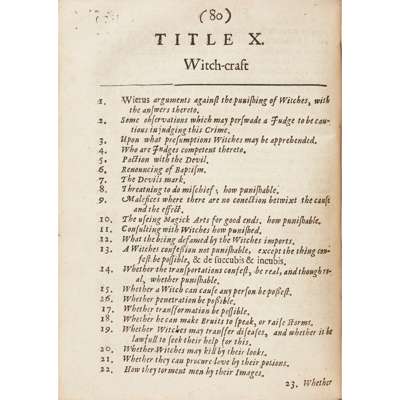 (80)
TITLE X.
Witch-craft
1. Wierus arguments againſt the puniſhing of Witches, with
the anſwers thereto.
2. Some obſervations which may perſwade a Judge to be cau-
tious in judging this Crime.
3. Upon what preſumptions Witches may be apprehended.
4. Who are Judges competent thereto.
5. Paction with the Devil.
6. Renouncing of Baptiſm.
7. The Devils mark.
8. Threatning to do miſchief, how puniſhable.
9. Malefices where there are no connection betwixt the cauſe
and the effect.
10. The uſeing Magick Arts for good ends, how puniſhable.
11. Conſulting with Witches how puniſhed.
12. What the being defamed by the Witches imports.
13. A Witches confeſſion not puniſhable, except the thing con-
feſt be poſſible, & de ſuccubis & incubis.
14. Whether the tranſportations confeſt, be real, and though re-
al, whether puniſhable.
15. Whether a Witch can cauſe any perſon be poſſeſt.
26. Whether penetration be poſſible.
17. Whether transformation be poſſible.
18. Whether he can make Bruits to ſpeak, or raiſe ſtorms.
19. Whether Witches may transfer diſeaſes, and whether it be
lawfull to ſeek their help for this.
20. Whether Witches may kill by their looks.
21. Whether they can procure love by their potions.
22. How they torment men by their Images.
23. Whether